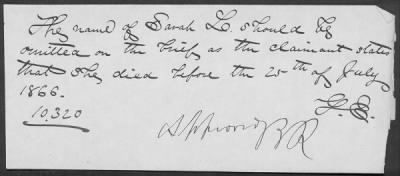 The name of Sarah L. should be
omitted on the brief as the claimant states
that she died before the 25th of July
1866.
10,320
L. E.
Approved BR